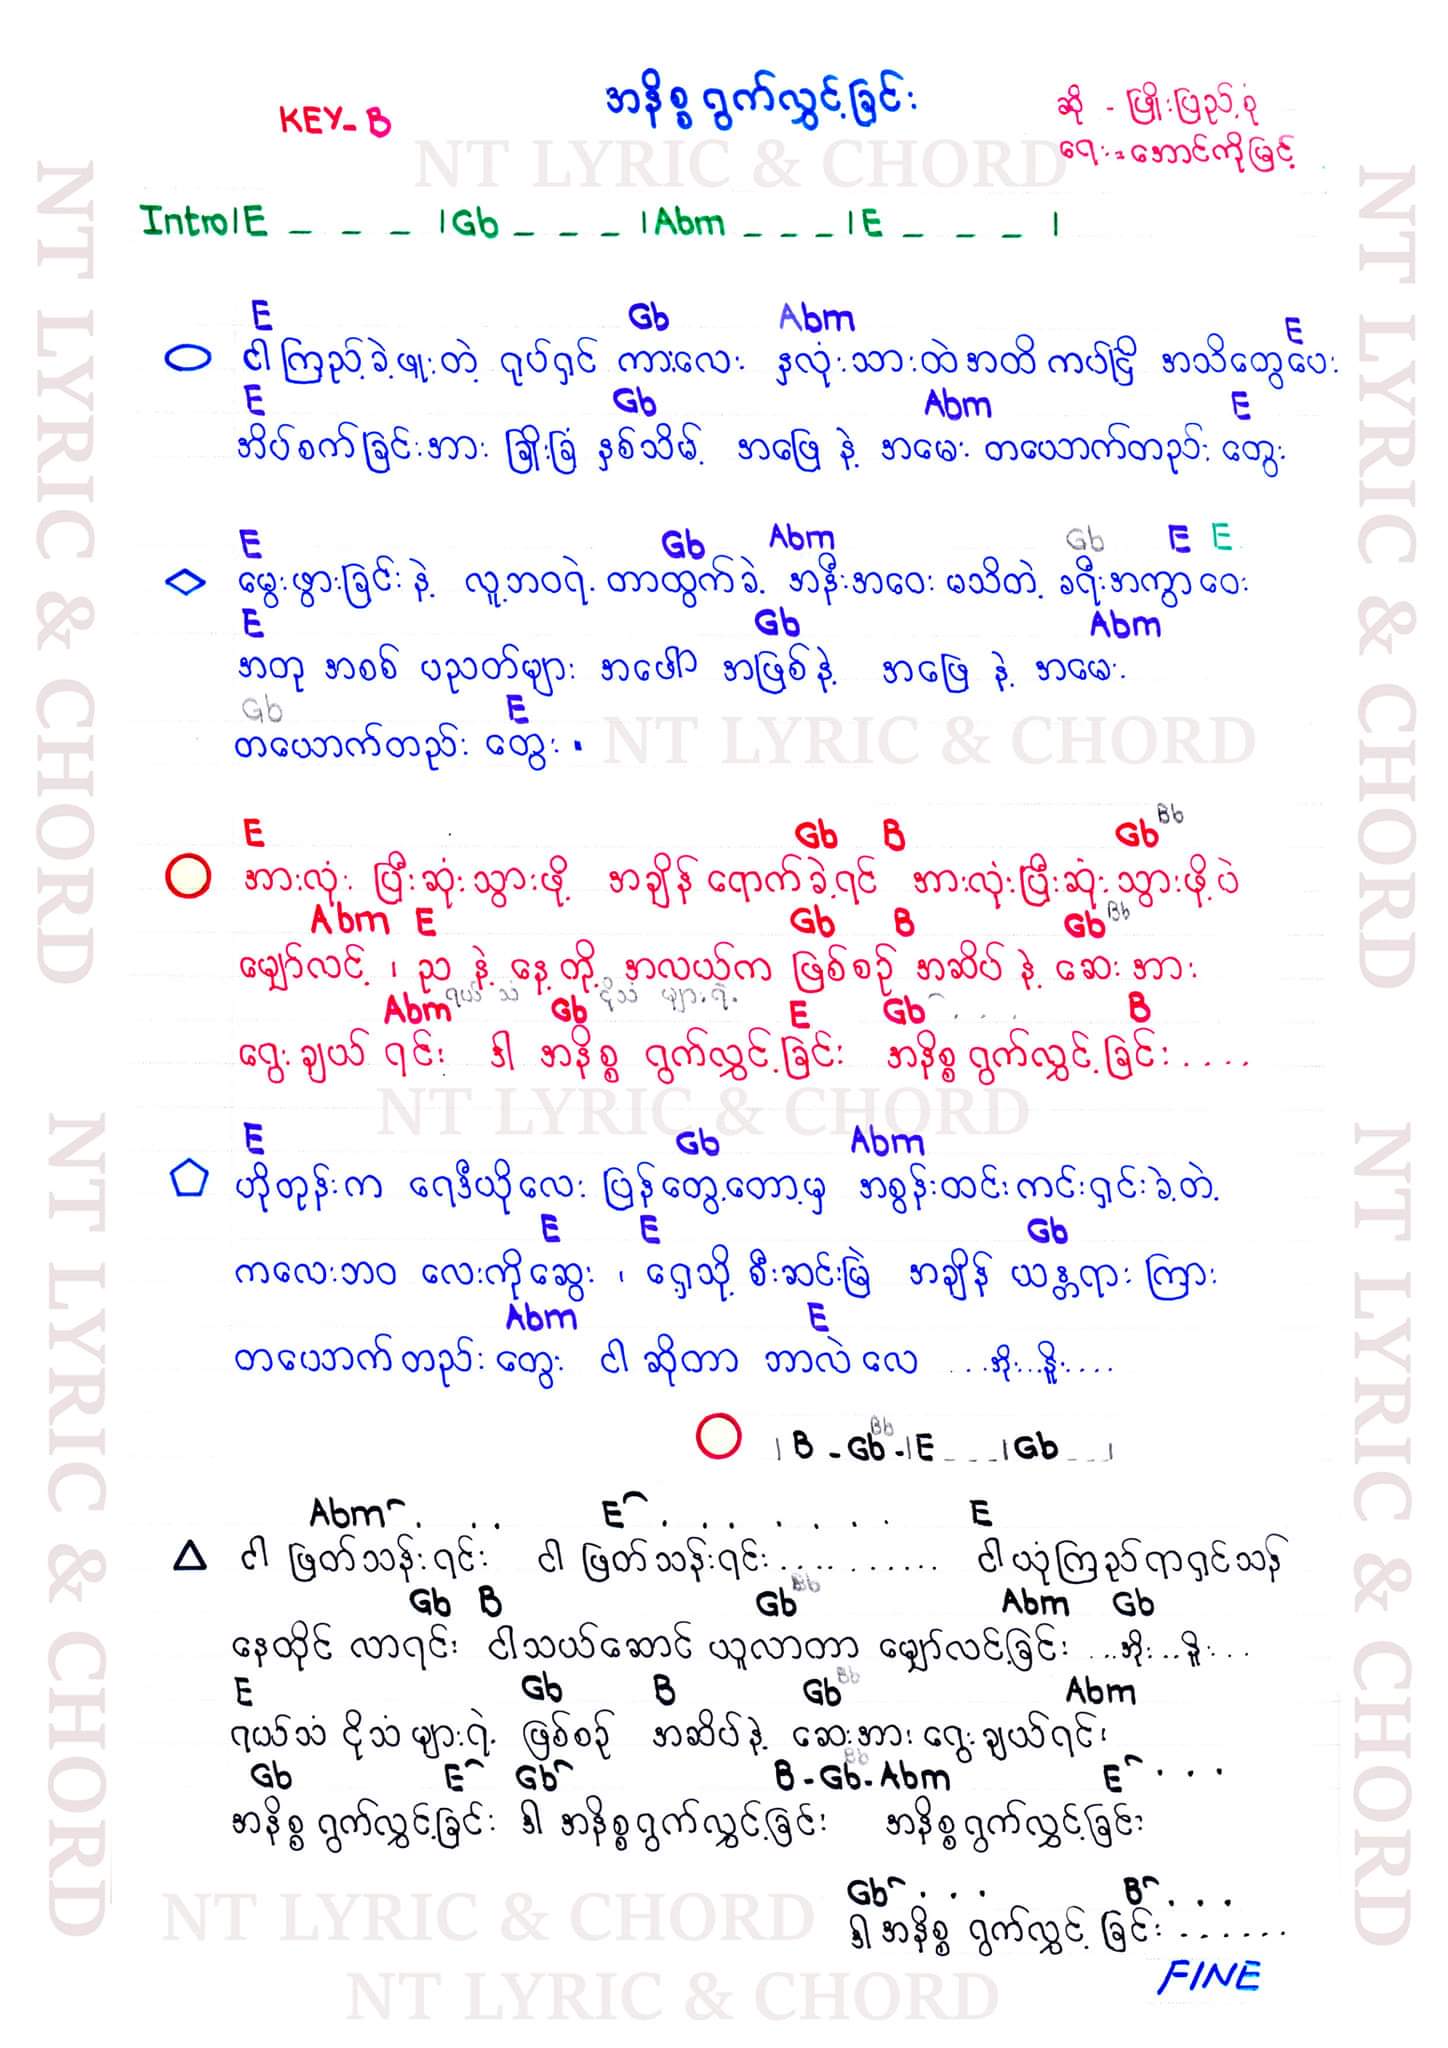 အနိစ္စ ရွက်လွှင့်ခြင်း
KEY-B
ဆို - ဖြိုးပြည့်စုံ
ရေး - အောင်ကိုမြင့်
NT LYRIC & CHORD
Intro|E _ _ _ |Gb _ _ _ |Abm _ _ _ |E _ _ _ |
E Gb Abm E
ငါကြည့်ခဲ့ဖူးတဲ့ ရုပ်ရှင် ကားလေး နှလုံးသားထဲအထိ ကပ်ငြိ အသိတွေပေး
E Gb Abm E
အိပ်စက်ခြင်းအား ခြိုးခြံ နှစ်သိမ့် အဖြေ နဲ့ အမေး တယောက်တည်း တွေး
E Gb Abm Gb E E
မွေးဖွားခြင်း နဲ့ လူ့ဘဝရဲ့ တာထွက်ခဲ့ အနီးအဝေး မသိတဲ့ ခရီးအကွာဝေး
E Gb Abm
အတု အစစ် ပညတ်များ အပေါ် အဖြစ်နဲ့ အဖြေ နဲ့ အမေး
Gb E
တယောက်တည်း တွေး
NT LYRIC & CHORD
E Gb B Gb Bb
အားလုံး ပြီးဆုံးသွားဖို့ အချိန် ရောက်ခဲ့ရင် အားလုံးပြီးဆုံး သွားဖို့ပဲ
Abm E Gb B Gb Bb
မျှော်လင့် ၊ ည နဲ့ နေ့တို့ အလယ်က ဖြစ်စဉ် အဆိပ် နဲ့ ဆေးအား
ရယ်သံ ငိုသံ များရဲ့
Abm Gb E Gb . . . B
ရွေးချယ် ရင်း ဒါ အနိစ္စ ရွက်လွှင့်ခြင်း အနိစ္စ ရွက်လွှင့်ခြင်း....
NT LYRIC & CHORD
E Gb Abm
ဟိုတုန်းက ရေဒီယိုလေး ပြန်တွေ့တော့မှ အစွန်းထင်းကင်းရှင်းခဲ့တဲ့
E E Gb
ကလေးဘဝ လေးကိုဆွေး ၊ ရှေ့သို့ စီးဆင်းမြဲ အချိန် ယန္တရား ကြား
Abm E
တယောက်တည်း တွေး ငါ ဆိုတာ ဘာလဲ လေ ...အိုး...နိူး....
| B - Gb Bb -|E _ _ _|Gb _ _|
Abm . . . E . . . . . . . E
ငါ ဖြတ်သန်းရင်း ငါ ဖြတ်သန်းရင်း........... ငါယုံကြည်ရာရှင်သန်
Gb B Gb Bb Abm Gb
နေထိုင် လာရင်း ငါသယ်ဆောင် ယူလာတာ မျှော်လင့်ခြင်း ...အိုး...နိူး...
E Gb B Gb Bb Abm
ရယ်သံ ငိုသံ များရဲ့ ဖြစ်စဉ် အဆိပ်နဲ့ ဆေးအား ရွေးချယ်ရင်း
Gb E Gb B - Gb Bb - Abm E . . .
အနိစ္စ ရွက်လွှင့်ခြင်း ဒါ အနိစ္စ ရွက်လွှင့်ခြင်း အနိစ္စ ရွက်လွှင့်ခြင်း
Gb . . . B . . .
ဒါ အနိစ္စ ရွက်လွှင့် ခြင်း.......
NT LYRIC & CHORD
FINE
NT LYRIC & CHORD
NT LYRIC & CHORD
NT LYRIC & CHORD
NT LYRIC & CHORD
NT LYRIC & CHORD